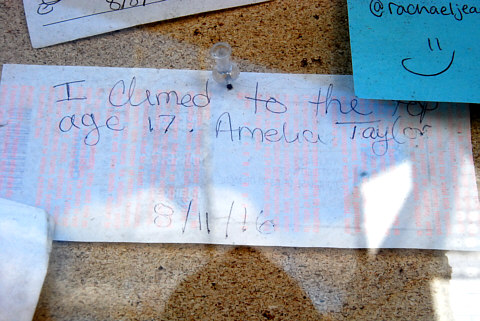 @rachaeljea
I climed to the top
age 17. Amelia Taylor
8/11/16